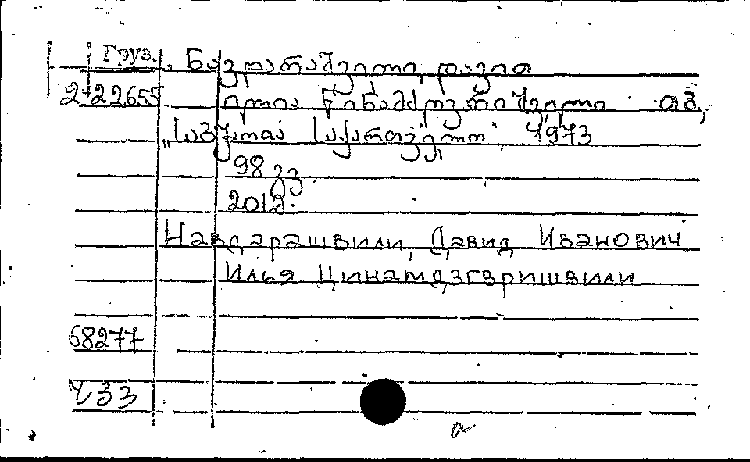 Груз. ნავდარაშვილი, დავით
2-22655 ილია წინამძღვრიშვილი. თბ,
„საბჭოთა საქართველო", 1973
98 გვ.
2012.
Навдарашвили, Давид Иванович
Илья Цинамдзгвришвили
68277
433